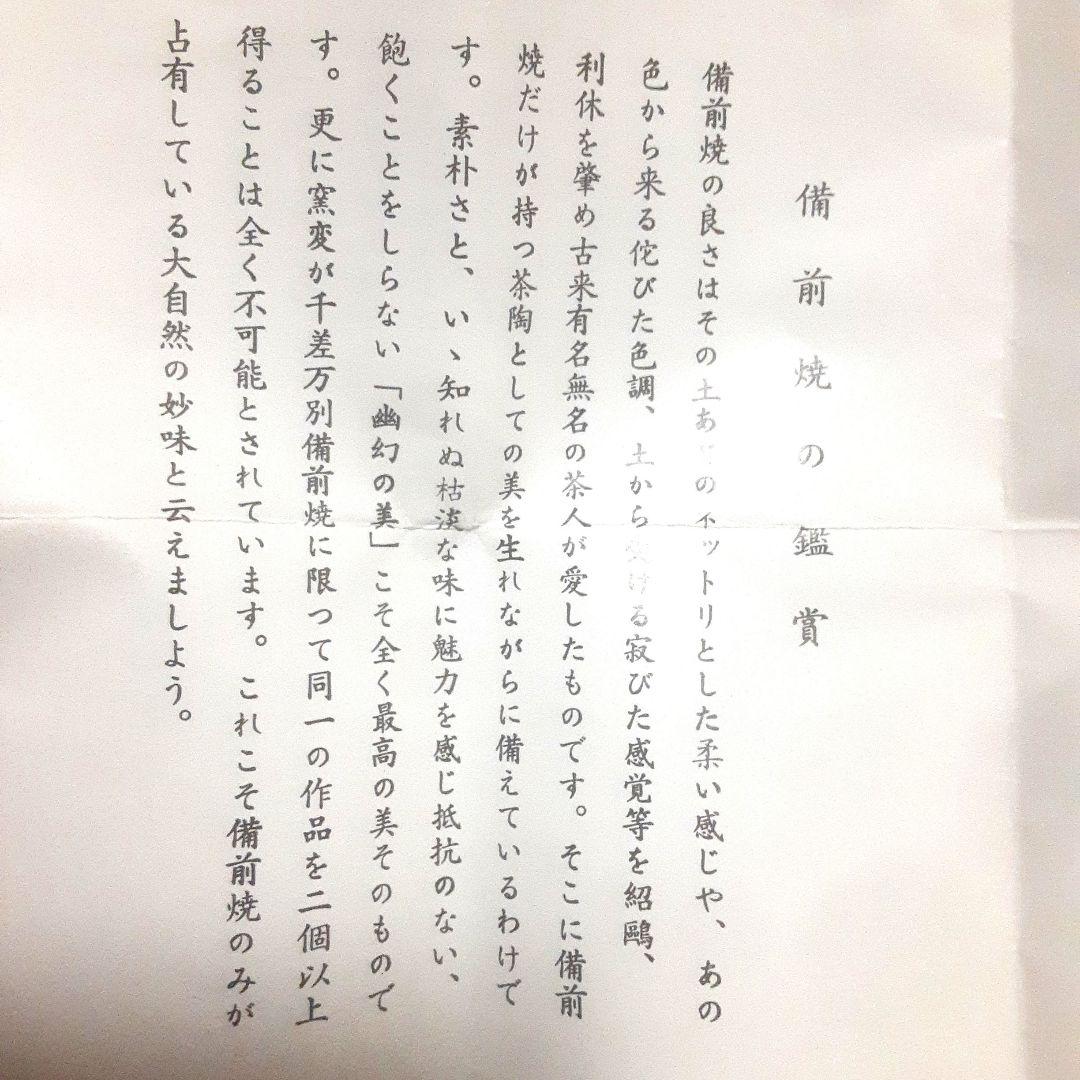 備前焼の鑑賞
備前焼の良さはその土あの ットリとした柔い感じや、あの
色から来る侘びた色調、土から受ける寂びた感覚等を紹鷗、
利休を肇め古来有名無名の茶人が愛したものです。そこに備前
焼だけが持つ茶陶としての美を生れながらに備えているわけで
す。素朴さと、いゝ知れぬ枯淡な味に魅力を感じ抵抗のない、
飽くことをしらない「幽幻の美」こそ全く最高の美そのもので
す。更に窯変が千差万別備前焼に限つて同一の作品を二個以上
得ることは全く不可能とされています。これこそ備前焼のみが
占有している大自然の妙味と云えましよう。